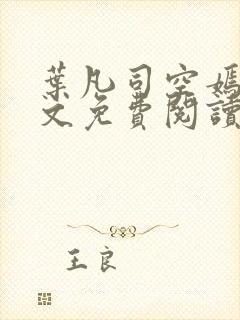 葉凡司空嫣
文免費閱讀
王良